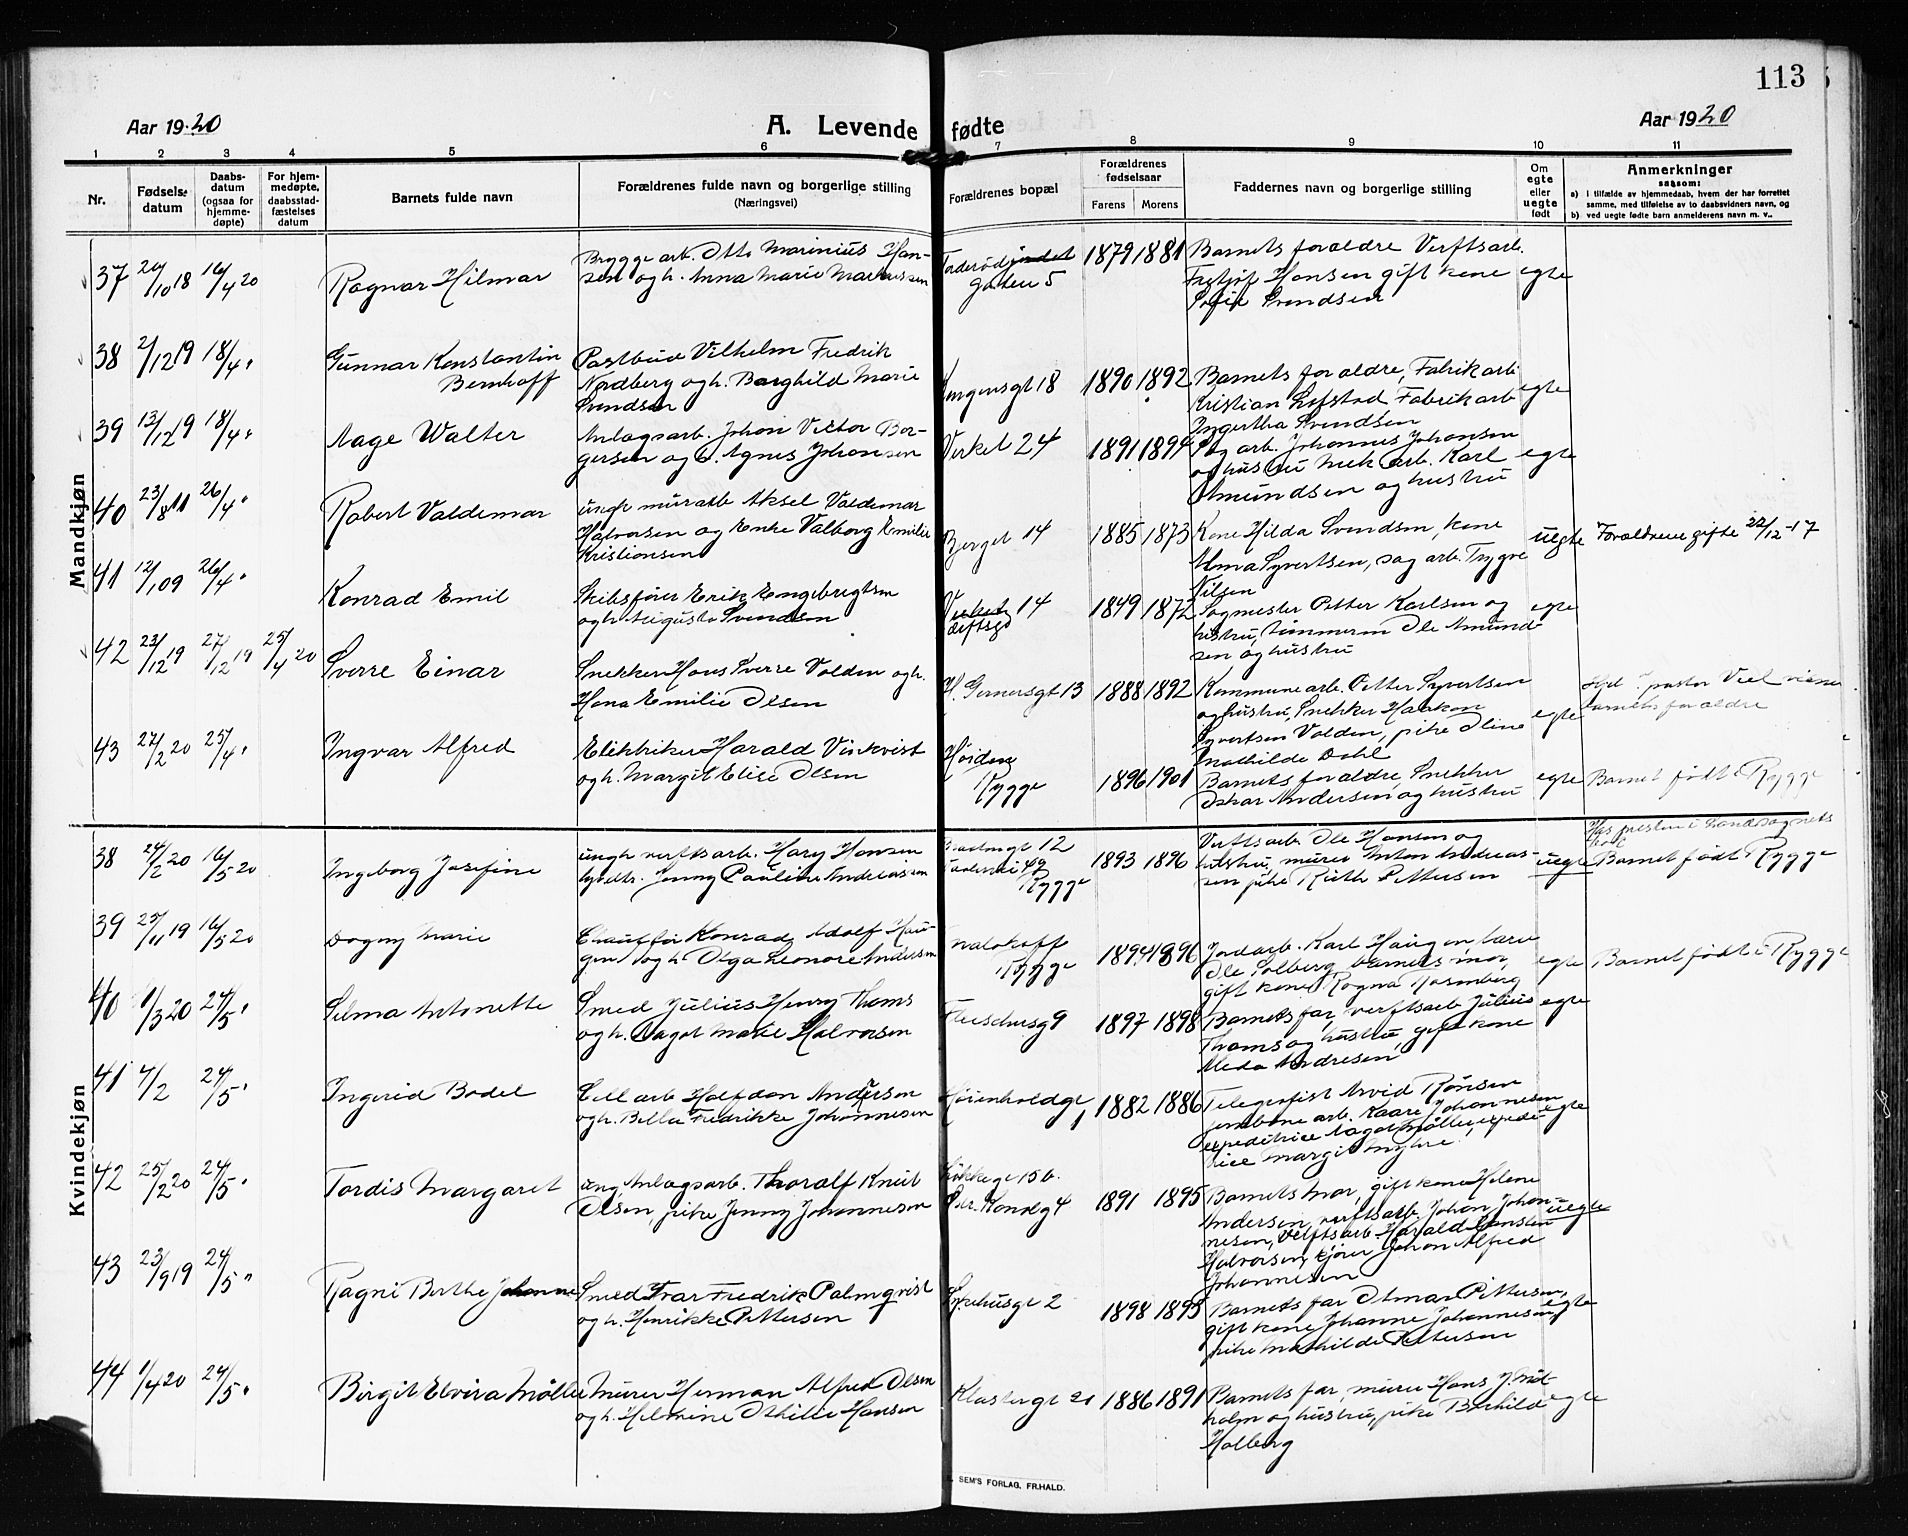 113
Aar 1920
A. Levende fødte
Aar 1920
1 2 3 4 5 6 7 8 9 10 11
Nr.
Fødsels-
datum
Daabs-
datum
(ogsaa for
hjemme-
døpte)
For hjem-
medøpte,
daabsstad-
fæstelses
datum
Barnets fulde navn
Forældrenes fulde navn og borgerlige stilling
(Næringsvei)
Forældrenes bopæl
Forældrenes
fødselsaar
Farens Morens
Faddernes navn og borgerlige stilling
Om
egte
eller
uegte
født
Anmerkninger
saasom:
a) i tilfælde av hjemmedaab, hvem der har forrettet
samme, med tilføielse av to daabsvidners navn, og
b) ved uegte fødte barn anmelderens navn m. v..
Mandkjøn
37 20/10 18 16/4 20 Ragnar Hilmar
Brygge arb. Otto Marinius Han-
sen og h. Anna Marie Markussen
gaten 5
1879 1881
Barnets forældre Verftsarb.
Fritjof Hansen gift kone
Sofie Svendsen
egte
38 2/12 19 18/4 "
Gunnar Konstantin
Bernhoff
Postbud Vilhelm Fredrik
Nordberg og h. Borghild Marie
Svendsen
Kongensgt 18
1890 1892
Barnets forældre, Fabrikarb
Kristian Lofstad Fabrikarb
Ingertha Svendsen
egte
39 13/12 19 18/4 "
Aage Walter
Anlagsarb. Johan Victor Bor-
gersen og h. Agnes Johansen
Verket 24
1891 1894
Sag arb. Johannes Johansen
og hustru Mek arb. Karl
Amundsen og hustru
egte
40 23/8 11 26/4 "
Robert Valdemar
ungk murarb Aksel Valdemar
Halvorsen og Enke Valborg Emilie
Kristiansen
Berget 14
1885 1873
Kone Hilda Svendsen, kone
Alma Syvertsen, sag arb. Trygve
Nilsen
uegte
Forældrene gifte 22/12-17
41 12/1 09 26/4 "
Konrad Emil
Skibsfører Erik Engebregtsen
og h. Augusta Svendsen
Verket 14
1849 1872
Sagmester Petter Karlsen og
hustru, tømmerm Ole Amund-
sen og hustru
egte
42 23/12 19 27/12 19 25/4 20
Sverre Einar
Snekker Hans Sverre Volden og h.
Hana Emilie Olsen
H. Gernersgt 13
1888 1892
Kommunearb. Petter Syvertsen
og hustru, Snekker Haakon
Syvertsen Volden, pike Oline
Mathilde Dahl
egte
barnets forældre
43 27/2 20 25/4 "
Ingvar Alfred
Elektriker Harald Vinkvist
og h. Margit Elise Olsen
Høiden
Rygge
1896 1901
Barnets forældre, Snekker
Oskar Andersen og hustru
egte
Barnet født i Rygge
Kvindekjøn
38 24/2 20 16/5 20
Ingeborg Josefine
ungk verftsarb. Harry Hansen
Jenny Pauline Andreassen
12
Rygge
1893 1896
Verftsarb Ole Hansen og
hustru, murer Anton Andreas-
sen pike Ruth Pettersen
uegte
Barnet født i Rygge
39 25/11 19 16/5 20
Dagny Marie
Chauffør Konrad Adolf Hau-
gen og h Olga Leonore Andersen
Rygge
1894 1896
Jordarb. Karl Haugen,
Ole Solberg, barnets mor,
gift kone Ragna Rosenberg
egte
Barnet født i Rygge
40 1/3 20 24/5 "
Selma Antonette
Smed Julius Henry Thoms
og h. Dagot Marie Halvorsen
Fleischersg 9
1897 1898
Barnets far, verftsarb Julius
Thoms og hustru, gift kone
Meda Andresen
egte
41 4/2 24/5 "
Ingerid Bodel
Cell arb Halfdan Andersen
og h. Bella Fredrikke Johannesen
Høienholdgt 1
1882 1886
Telegrafist Arvid Rønsen
jernbane arb. Kaare Johannesen
expeditrice Aagot Møller, expedi-
trice Margit Myhre
egte
42 25/2 20 24/5 "
Tordis Margaret
ung. Anlagsarb. Thoralf Knut
Olsen, pike Jenny Johannesen
Løkkegt 15 b.
1891 1895
Barnets mor, gift kone Helene
Andersen, verftsarb. Johan Johan-
nesen, Verftsarb Harald
Halvorsen, kjører Johan Alfred
Johannesen
uegte
43 23/9 19 24/5 "
Ragni Berthe Johanne
Smed Ivar Fredrik Palmqvist
og h. Henrikke Pettersen
Sykehusgt 2
1898 1895
Barnets far Otmar Pettersen,
gift kone Johanne Johannesen,
pike Mathilde Pettersen
egte
44 1/4 20 24/5 "
Birgit Elvira Møller
Murer Herman Alfred Olsen
og h. Helmine Othilie Hansen
Klostergt 21
1886 1891
Barnets far, murer Hans J. Mit-
holm og hustru, pike Borhild
Holberg
egte
SEM'S FORLAG, FR.HALD.